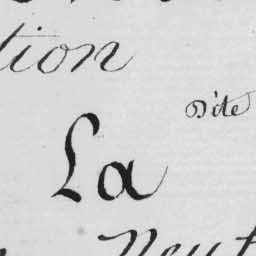 tion
Dite
La
Neuf